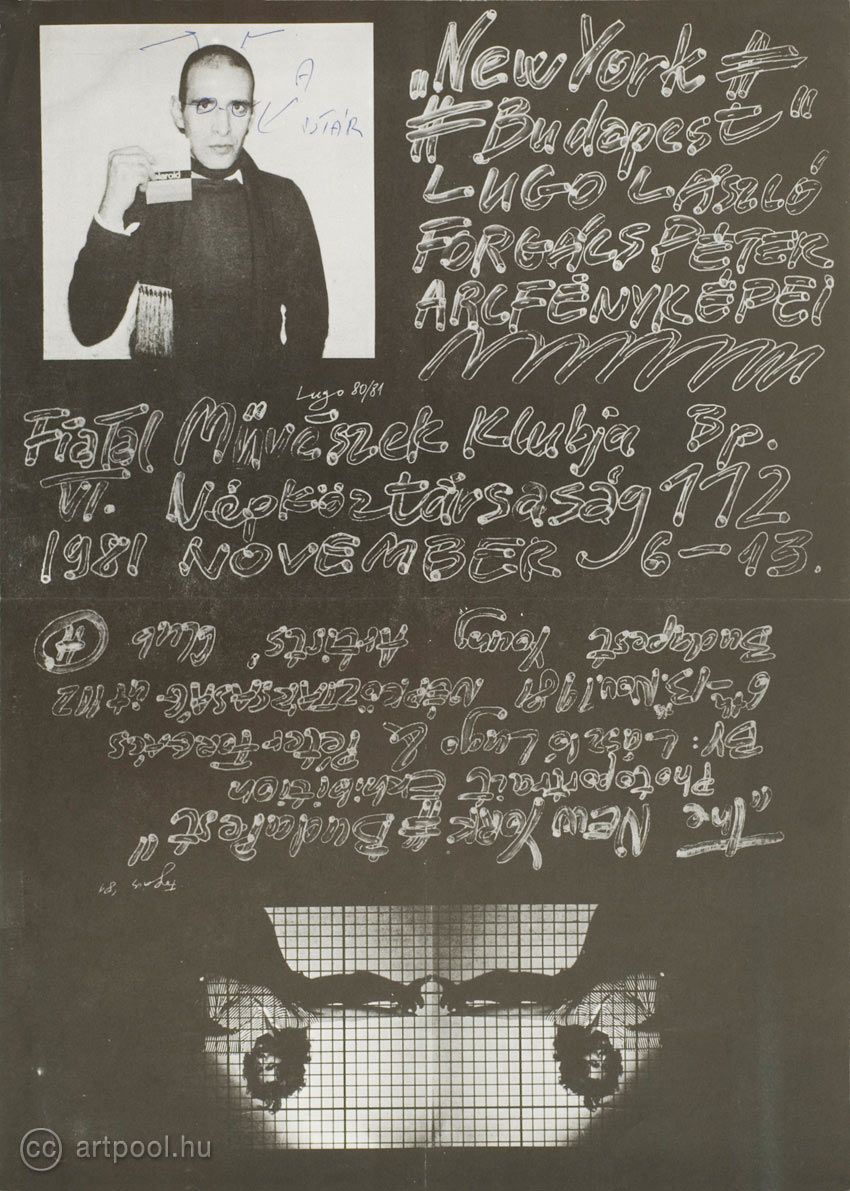 A
olaroid
„New York #
# Budapest"
LUGO LÁSZLÓ
FORGÁCS PÉTER
ARCFÉNYKÉPEI
Lugo 80/81
Fiatal Művészek Klubja Bp.
VI. Népköztársaság 112
1981 NOVEMBER 6–13.
„The NEW YORK # BUDAPEST"
Photoportrait Exhibition
BY: László Lugo & Péter FORGÁCS
6–13.th Nov. 1981 NÉPKÖZTÁRSASÁG út 112
Budapest Young Artists' Club #
'81
cc artpool.hu